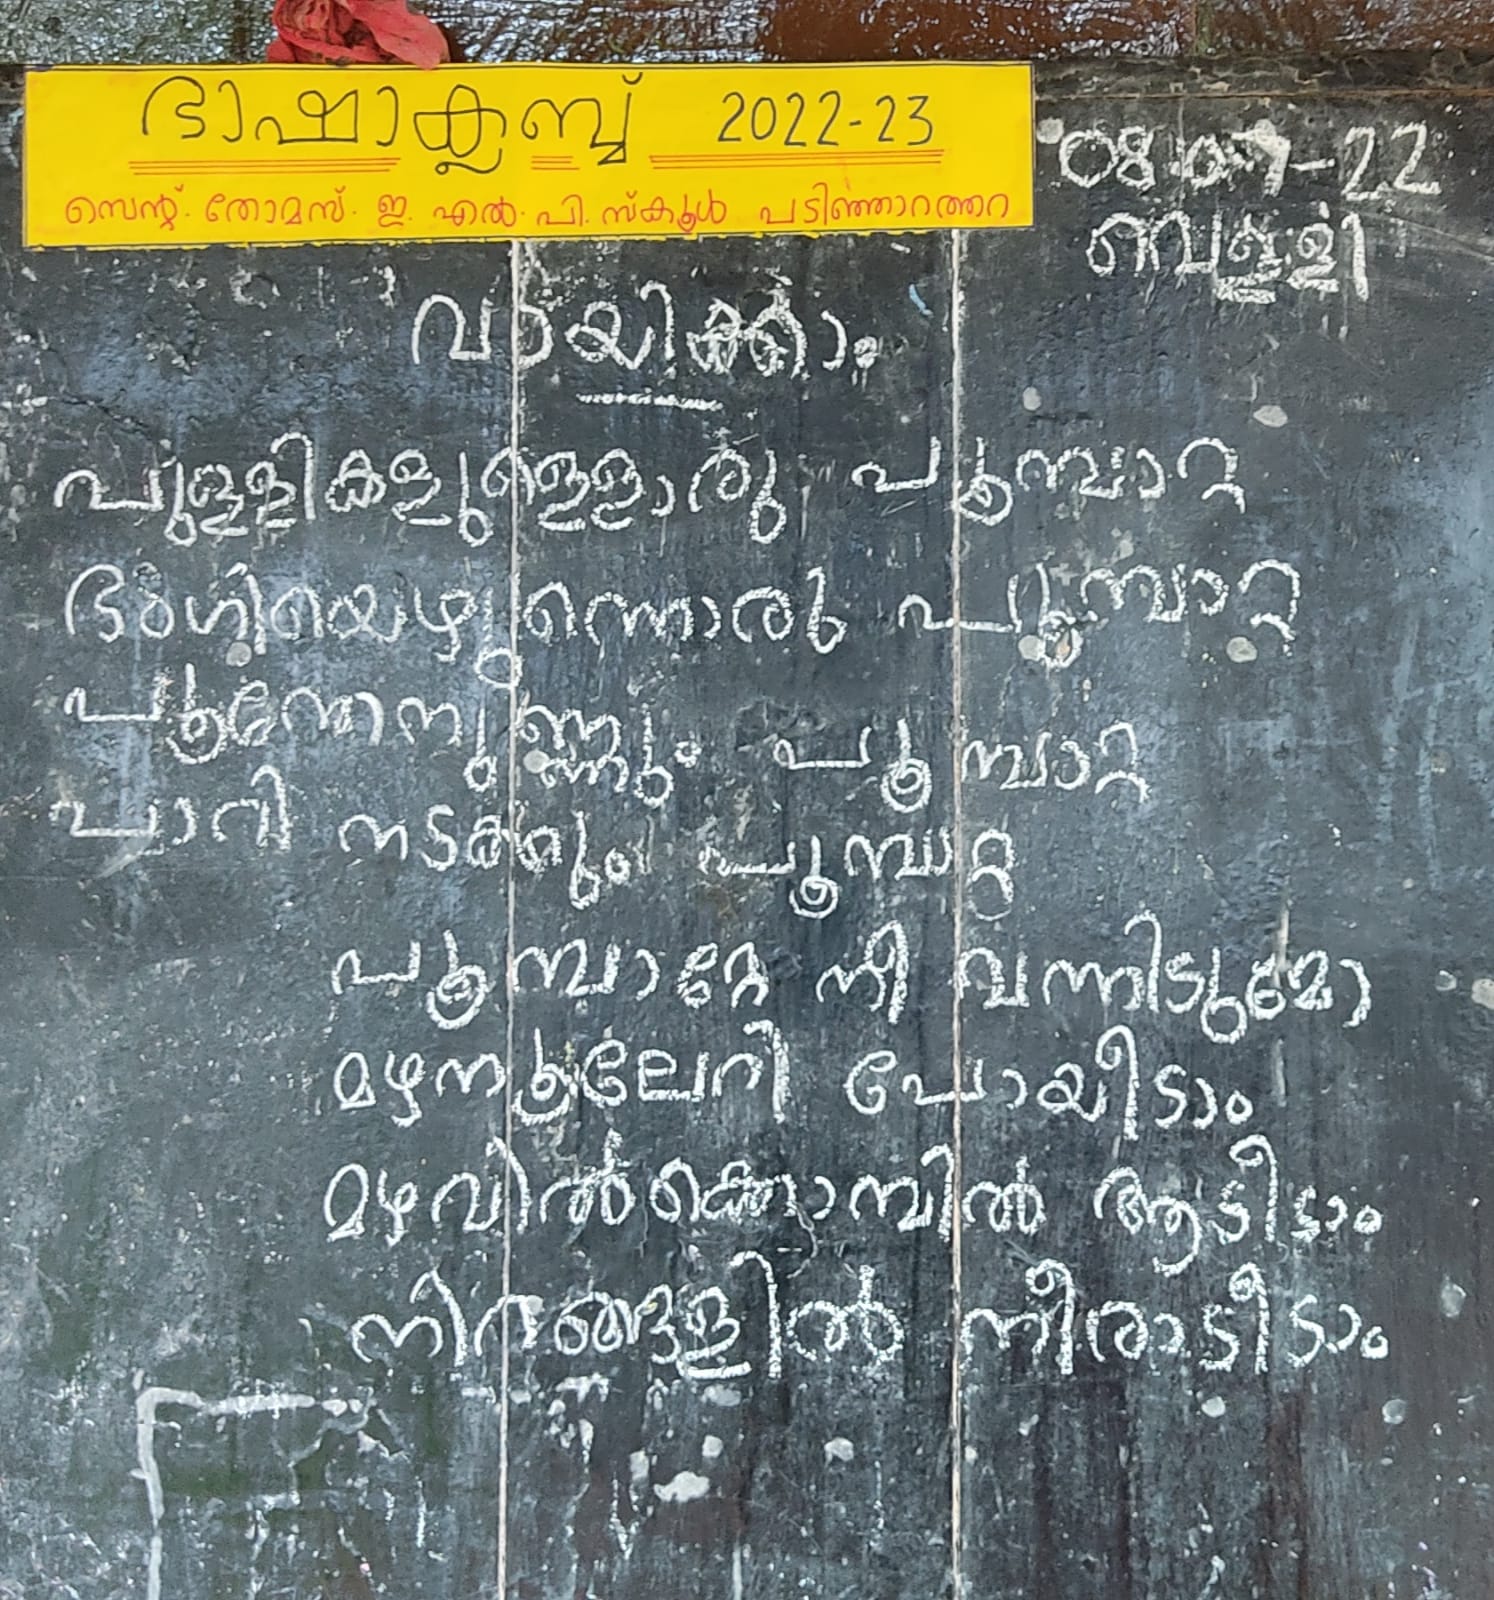 ഭാഷാക്ലബ്ബ് 2022-23
സെന്റ്. തോമസ്. ഇ. എൽ. പി. സ്കൂൾ പടിഞ്ഞാറത്തറ
08-07-22
വെള്ളി
വായിക്കാം
പുള്ളികളുള്ളൊരു പൂമ്പാറ്റ
ഭംഗിയെഴുന്നൊരു പൂമ്പാറ്റ
പൂന്തേനുണ്ണും പൂമ്പാറ്റ
പാറി നടക്കും പൂമ്പാറ്റ
പൂമ്പാറ്റേ നീ വന്നിടുമോ
മഴനൂലേറി പോയീടാം
മഴവിൽക്കൊമ്പിൽ ആടീടാം
നിറങ്ങളിൽ നീരാടീടാം